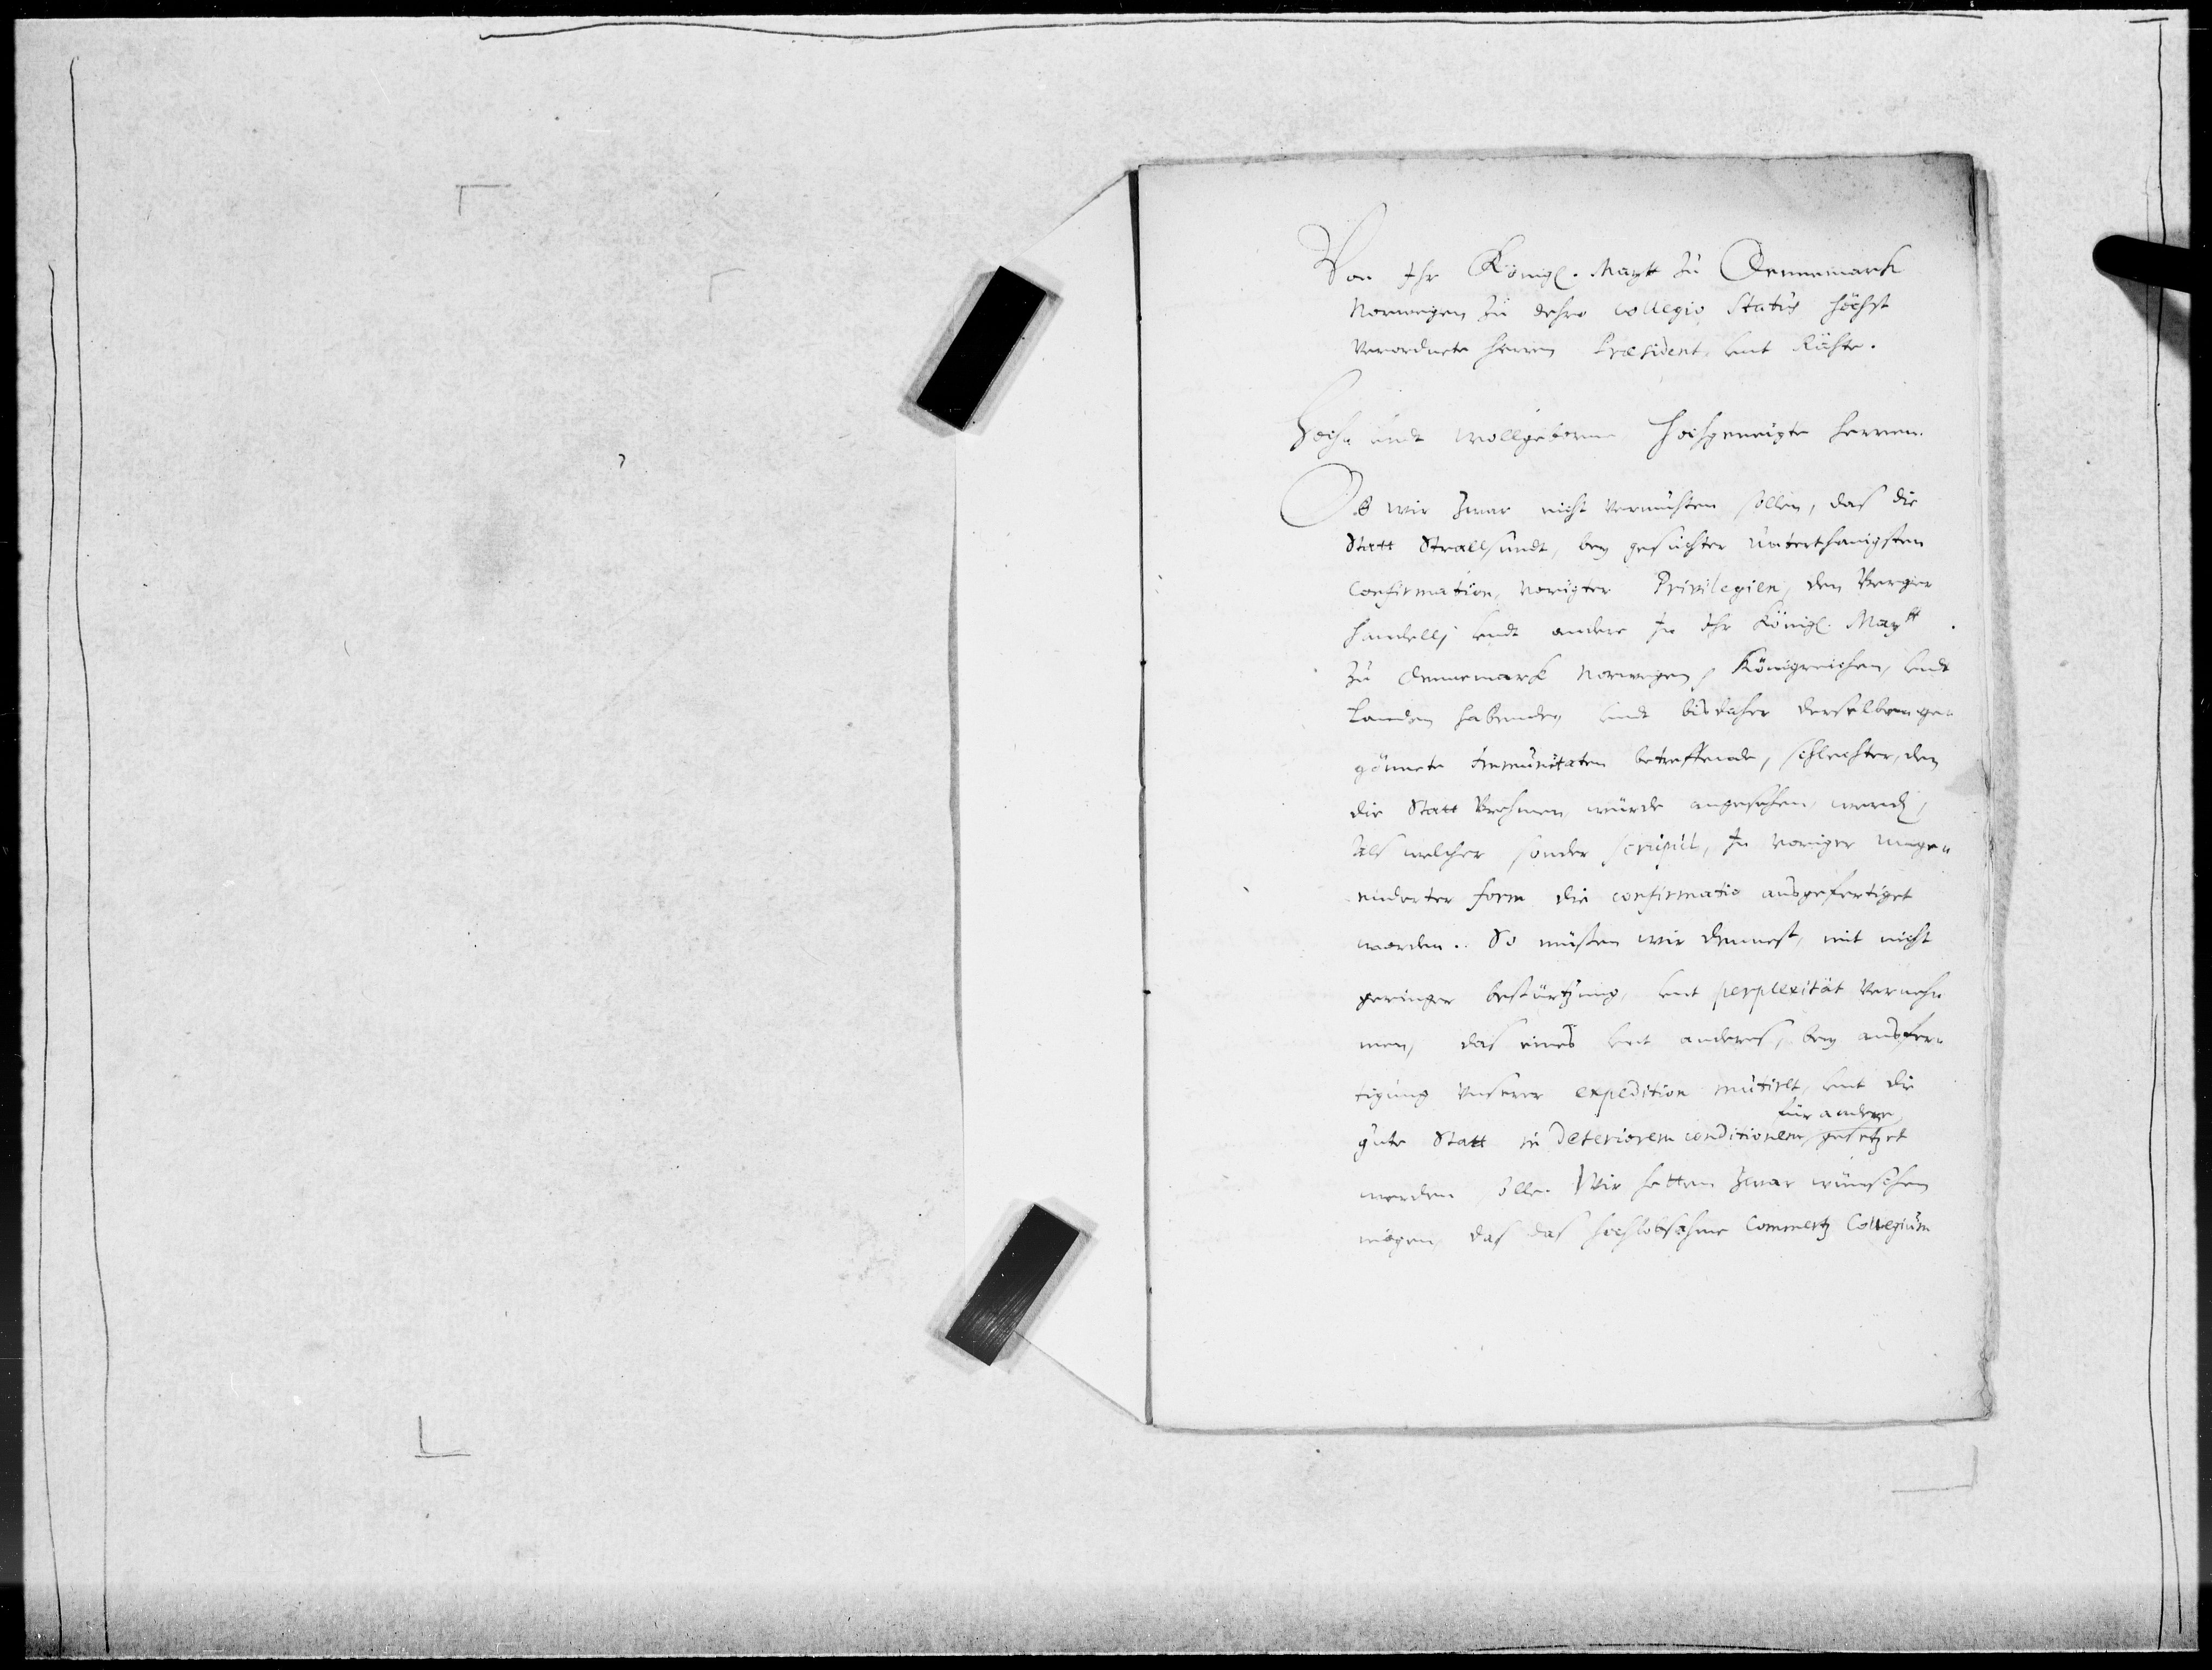 Von Ihr Königl. Maytt zu Dennemarck
Norwegen zu dehro collegio Status höchst
Verordnete Herren Præsident, undt Rähte.
Hoch undt wollgeborne Hochgeneigte Herren.
Ob wir zwar nicht vermuhten sollen, das die
Statt Strallsundt, bey gesuchter Unterthänigsten
Confirmation, voriger Privilegien, den Berger
Handell, undt andere In Ihr Königl. Maytt
zu Dennemarck Norwegen, Königreichen, undt
Landen habenden undt bisdaher derselben ge-
gönnete Immunitaten betreffende, schlechter, den
die Statt Brehmen, würde angesehen werden,
Als welcher sonder scrupul, In voriger unge-
enderter form die confirmatio ausgefertiget
worden. So müßen wir dennoch, mit nicht
geringer bestürtzung, undt perplexität verneh-
men, das eines undt anderes, bey ausfer-
tigung Unserer expedition mutirt, undt die
für andere
gute Statt in deteriorem conditionem, gesetzet
werden solle. Wir hetten zwar wünschen
mögen, das das hochlobsahme Commertz Collegium